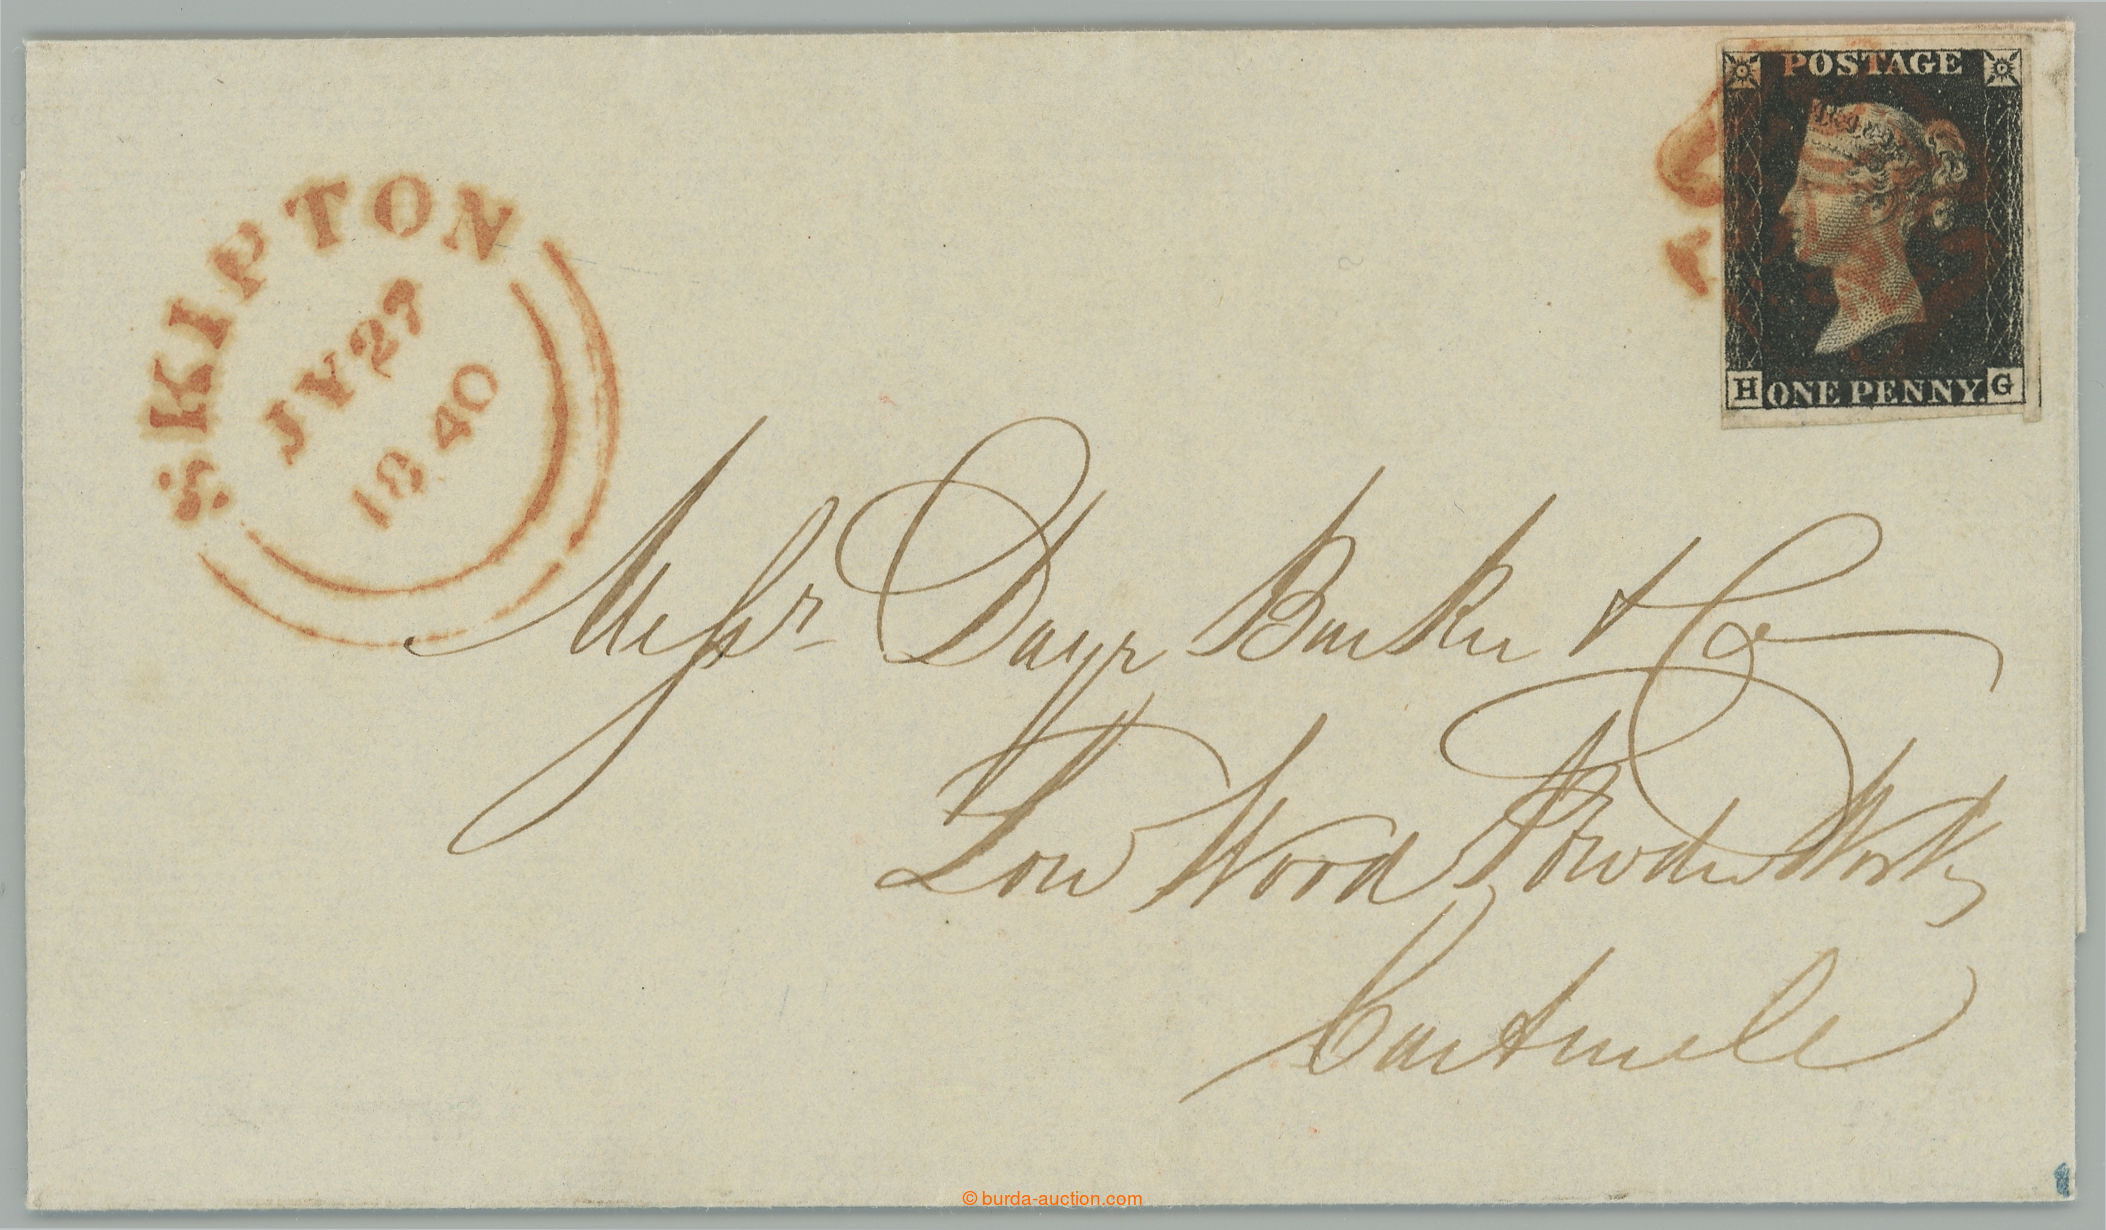 SKIPTON
JY 27
1840
POSTAGE
H ONE PENNY. G
Messrs Daye Barker & Co
Low Wood Powder Works
Cartmele
© burda-auction.com